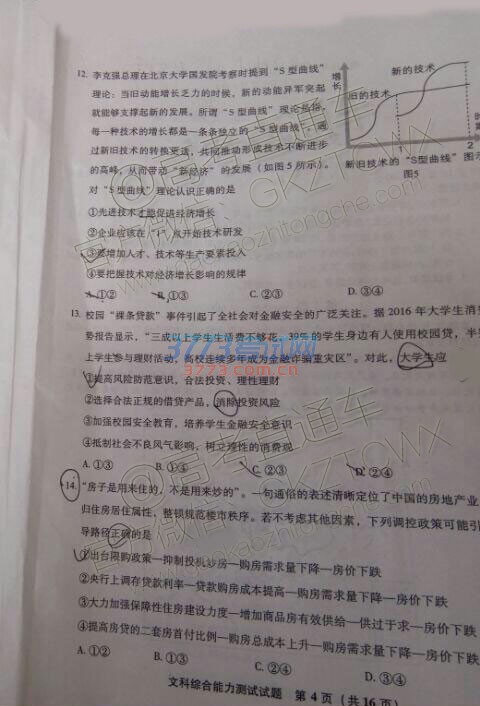 12. 李克强总理在北京大学国发院考察时提到“S 型曲线”
理论：当旧动能增长乏力的时候，新的动能异军突起
就能够支撑起新的发展。所谓“S 型曲线”理论是指，
每一种技术的增长都是一条条独立的“S 型曲线”，通
过新旧技术的转换更迭，共同推动形成技术不断进步
的高峰，从而带动“新经济”的发展（如图5 所示）。
对“S 型曲线”理论认识正确的是
增长
旧的技术
新的技术
1
2
新旧技术的“S型曲线”图
图5
①先进技术才能促进经济增长
②企业应该在“1”点开始技术研发
③要增加人才、技术等生产要素投入
④要把握技术对经济增长影响的规律
A.①② B.①③ C.②③ D.③④
13. 校园“裸条贷款”事件引起了全社会对金融安全的广泛关注。据 2016 年大学生消
势报告显示，“三成以上学生生活费不够花，39%的学生身边有人使用校园贷，半
上学生参与理财活动，高校连续多年成为金融诈骗重灾区”。对此，大学生应
①提高风险防范意识，合法投资、理性理财
②选择合法正规的借贷产品，消除投资风险
③加强校园安全教育，培养学生金融安全意识
④抵制社会不良风气影响，树立理性的消费观
A.①③ B.①④ C.②③ D.②④
14. “房子是用来住的，不是用来炒的”。一句通俗的表述清晰定位了中国的房地产业
归住房居住属性，整顿规范楼市秩序。若不考虑其他因素，下列调控政策可能引
导路径正确的是
①出台限购政策—抑制投机炒房—购房需求量下降—房价下跌
②央行上调存贷款利率—贷款购房成本提高—购房需求量下降—房价下跌
③大力加强保障性住房建设力度—增加商品房有效供给—供过于求—房价下跌
④提高房贷的二套房首付比例—购房总成本上升—购房需求量下降—房价下跌
A.①② B.①③ C.②④ D.③④
文科综合能力测试试题 第 4 页（共 16 页）
@高考直通车
官方微信：GKZTCWX
www.gaokaozhitongche.com
3773考试网
3773.com.cn